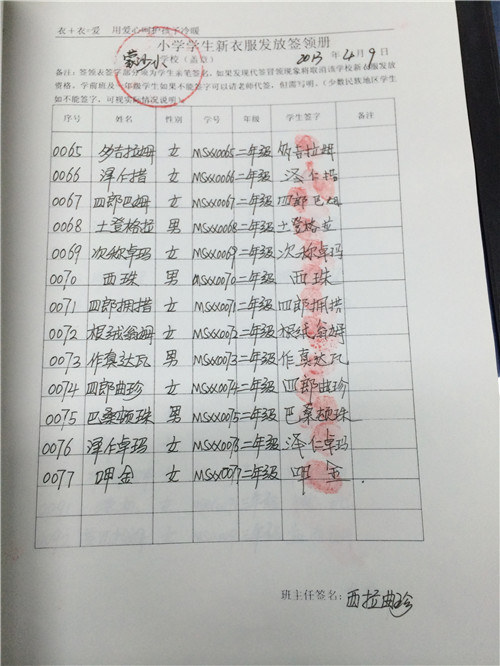 衣+衣=爱 用爱心呵护孩子冷暖
小学学生新衣服发放签领册
蒙沙小学校(盖章) 2013年4月9日
备注:签领表签字部分须为学生亲笔签名,如果发现代签冒领现象将取消该学校新衣服发放
资格。学前班及一年级学生如果不能签字可以请老师代签,但需写明。(少数民族地区学生
如不能签字,可视实际情况说明)
序号 姓名 性别 学号 年级 学生签字 备注
0065 多吉拉姆 女 MSXX0065 二年级 多吉拉姆
0066 泽仁措 女 MSXX0066 二年级 泽仁措
0067 四郎巴姆 女 MSXX0067 二年级 四郎巴姆
0068 土登格拉 男 MSXX0068 二年级 土登格拉
0069 次称卓玛 女 MSXX0069 二年级 次称卓玛
0070 西珠 男 MSXX0070 二年级 西珠
0071 四郎拥措 女 MSXX0071 二年级 四郎拥措
0072 根绒翁姆 女 MSXX0072 二年级 根绒翁姆
0073 作真达瓦 男 MSXX0073 二年级 作真达瓦
0074 四郎曲珍 女 MSXX0074 二年级 四郎曲珍
0075 巴桑顿珠 男 MSXX0075 二年级 巴桑顿珠
0076 泽仁卓玛 女 MSXX0076 二年级 泽仁卓玛
0077 呷金 女 MSXX0077 二年级 呷金
班主任签名:西拉曲珍